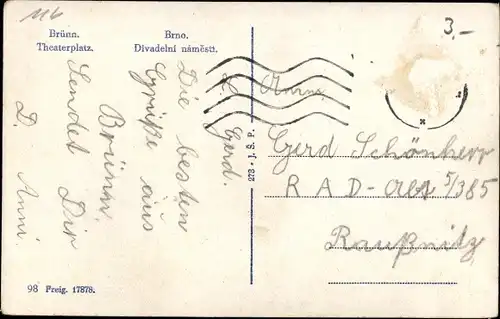 116
3.-
Brünn.
Theaterplatz.
Brno.
Divadelní náměstí.
Gerd.
Die besten
Grüße aus
Brünn
sendet Dir
D. Anni
273 - J. Š. P.
Gerd Schönherr
RAD-Abt 5/385
Raußnitz
98 Freig. 17878.